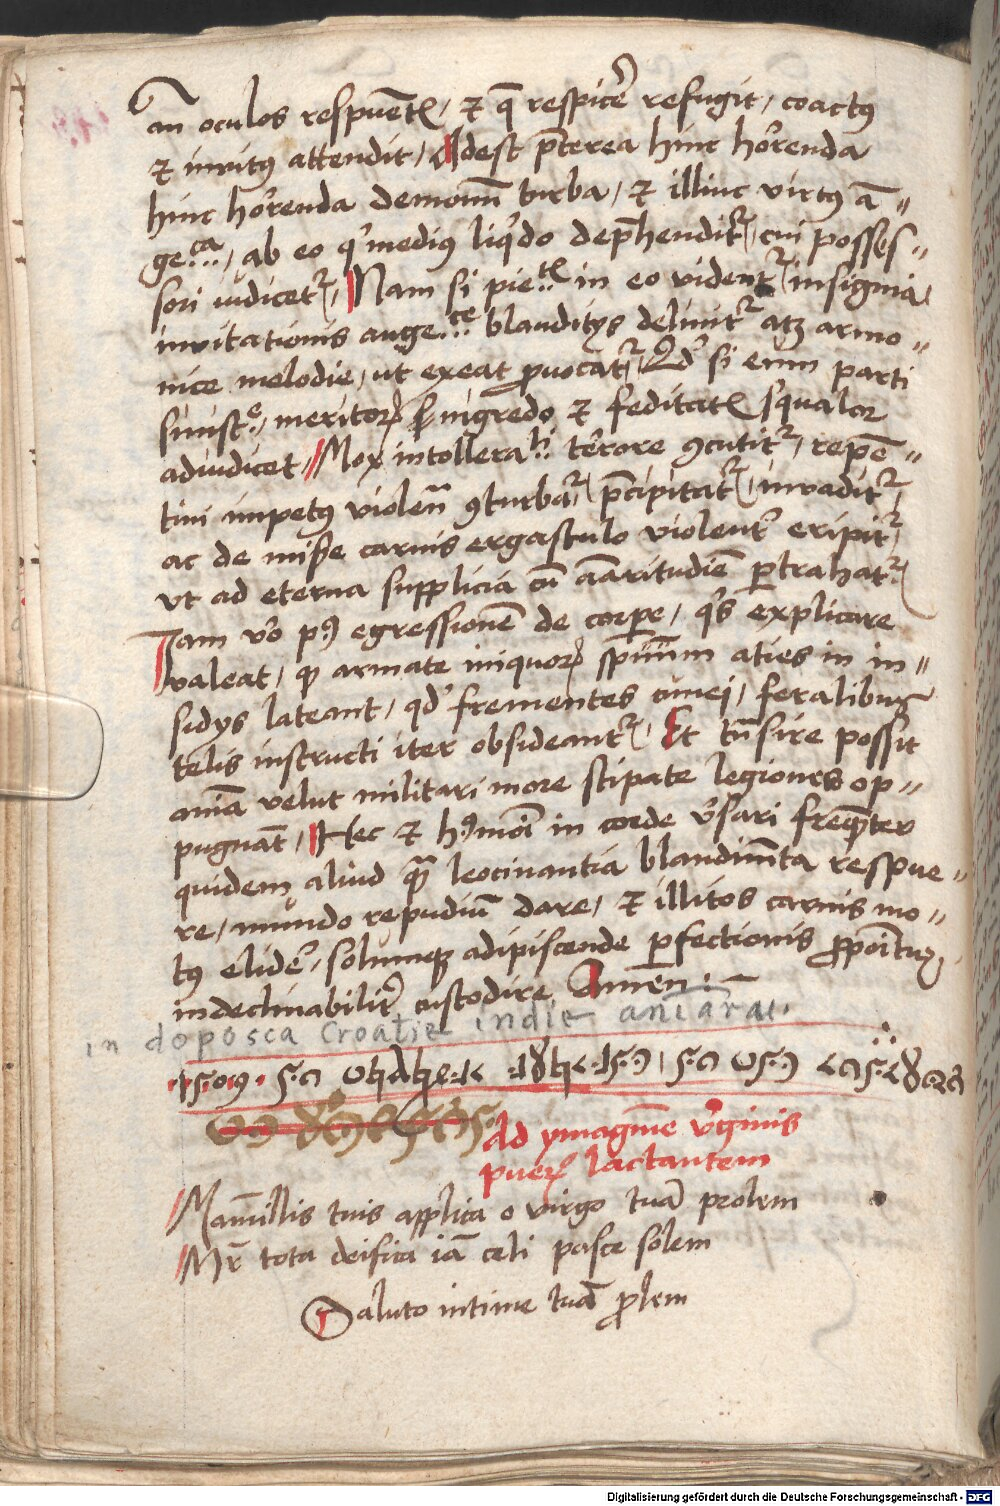 an oculos respuētꝭ, ⁊ q̄ respicē̉ refugit, coactꝰ
⁊ invitꝰ attendit, Adest p̄terea hinc horrenda
hinc horrenda demonum̄ turba, ⁊ illinc virtꝰ ā⸗
ge..ca, ab eo q̉ mediꝰ liq̉do dep̄henditᷣ, cui posses⸗
sori iudicetᷣ, Nam si pie..tꝭ in eo videntᷣ insignia
invitationis ange..ce blanditijs delinitᷣ atqꝫ armo⸗
nice melodie, ut exeat ꝓvocatᷣ, Qd̉ si enim parti
sinistᵉ, meritoꝝ nigredo ⁊ feditatꝭ squalor
adiudicet, Mox intollera..li terrore ꝯcutitᷣ, repē⸗
tini impetꝰ violen̄ ꝯturbatᷣ, p̄cipitatᷣ, invaditᷣ,
ac de mise carnis ergastulo violent̉ eripitᷣ
vt ad eterna supplicia cū amaritudīe ꝑtrahatᷣ
Iam v̉o pꝰ egressionē de corꝑe, q̉s explicare
valeat, ꝙ armate iniquoꝝ spirituum aties in in⸗
sidijs lateant, qd̉ frementes cunei, feralibus
telis instructi iter obsideantᷣ, Et tn̄sire possit
aniā velut militari more stipate legiones op⸗
pugnāt, Hec ⁊ hꝰmōi in corde v̉sari freq̄nter
quidem aliud quā leocinantia blandimīta respue⸗
re, mundo repudiū dare, ⁊ illitos carnis mo⸗
tꝰ elider̉, solumqꝫ adipiscende ꝑfectionis ꝓpoītuꝫ
indeclinabilit̉ custodire, Amen:⸺
in doposca Croatie indie aniarai.
Ad ymaginē v̉ginis
pueꝝ lactantem
Mam̄illis tuis applica o virgo tuā prolem
Mr̄ tota deifica iā celi pasce solem
Saluto intime tuā ꝓlem
Digitalisierung gefördert durch die Deutsche Forschungsgemeinschaft - DFG